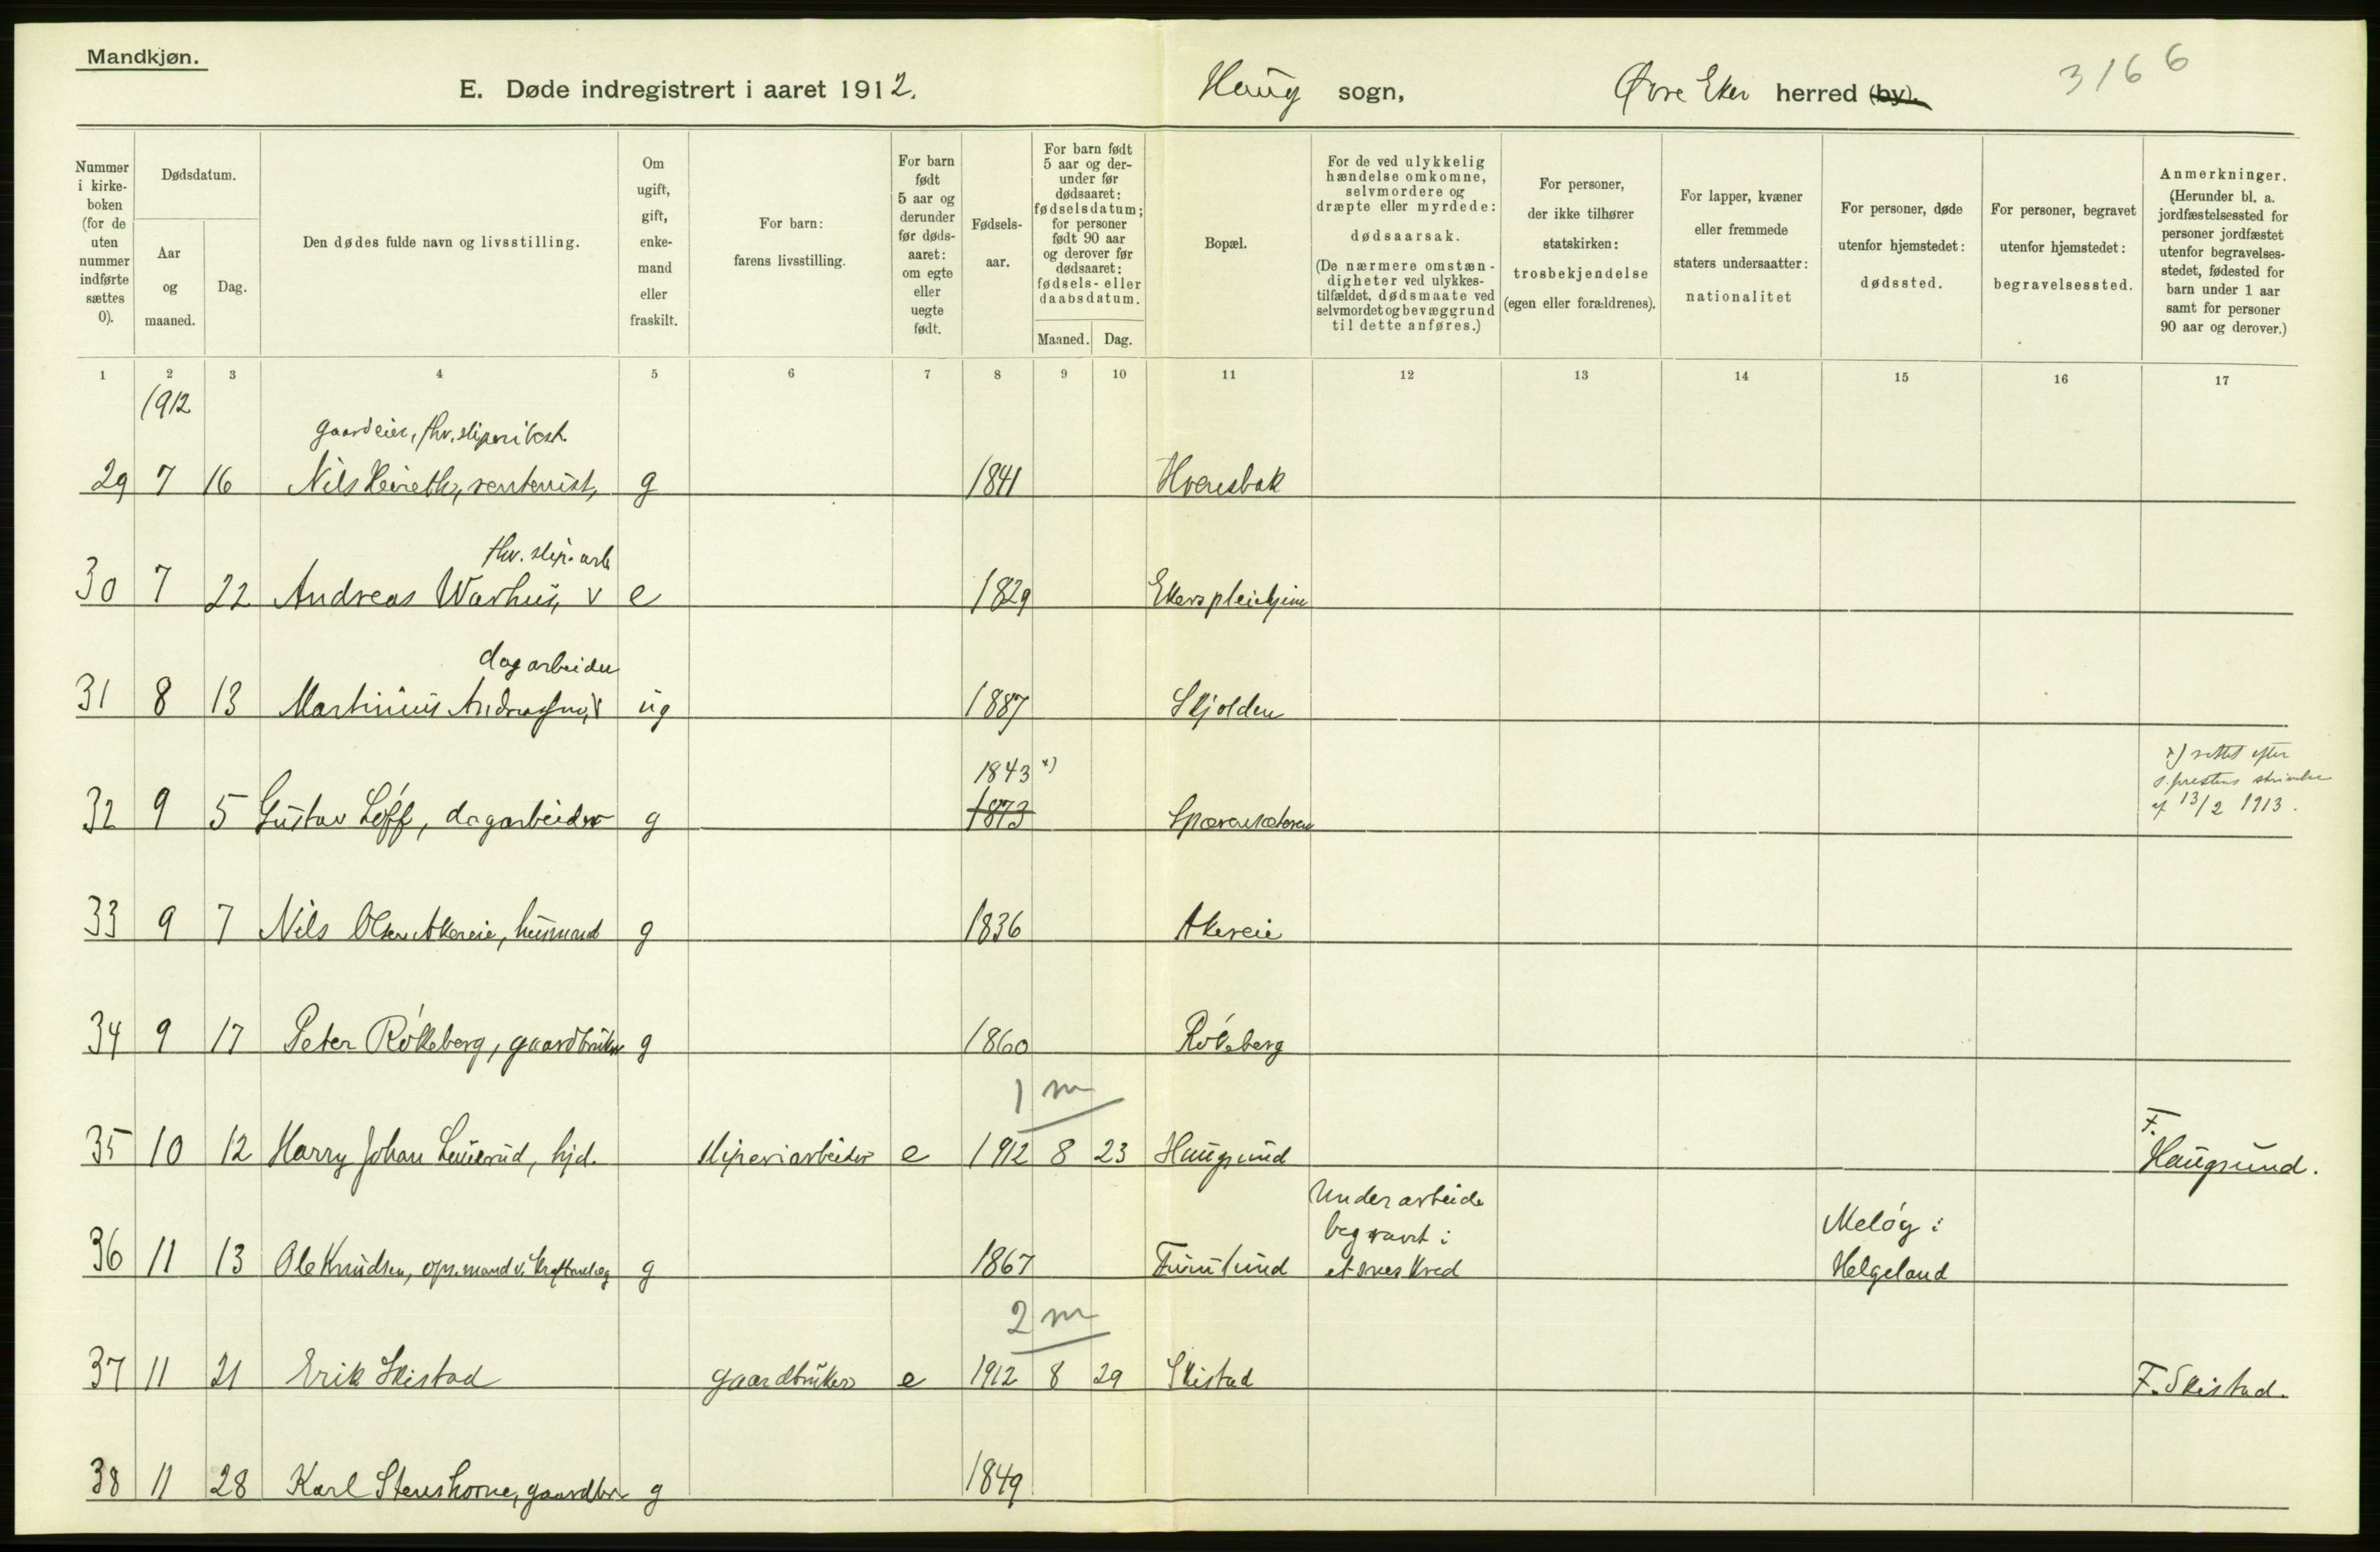 Mandkjøn.
E. Døde indregistrert i aaret 1912.
Haug sogn,
Øvre Eker herred (by).
3166
Nummer i kirke-boken (for de uten nummer indførte sættes 0).
Dødsdatum.
Aar og maaned.
Dag.
Den dødes fulde navn og livsstilling.
Om ugift, gift, enke-mand eller fraskilt.
For barn: farens livsstilling.
For barn født 5 aar og derunder før døds-aaret: om egte eller uegte født.
Fødsels-aar.
For barn født 5 aar og der-under før dødsaaret: fødselsdatum; for personer født 90 aar og derover før dødsaaret: fødsels- eller daabsdatum.
Maaned.
Dag.
Bopæl.
For de ved ulykkelig hændelse omkomne, selvmordere og dræpte eller myrdede: dødsaarsak. (De nærmere omstæn-digheter ved ulykkes-tilfældet, dødsmaate ved selvmordet og bevæggrund til dette anføres.)
For personer, der ikke tilhører statskirken: trosbekjendelse (egen eller forældrenes).
For lapper, kvæner eller fremmede staters undersaatter: nationalitet
For personer, døde utenfor hjemstedet: dødssted.
For personer, begravet utenfor hjemstedet: begravelsessted.
Anmerkninger. (Herunder bl. a. jordfæstelsessted for personer jordfæstet utenfor begravelses-stedet, fødested for barn under 1 aar samt for personer 90 aar og derover.)
1 2 3 4 5 6 7 8 9 10 11 12 13 14 15 16 17
1912
gaardeier, fhv. sliperibest.
29 7 16 Nils rentenist, g 1841
fhv. slip. arb
30 7 22 Andreas Warhus, v e 1829 Ekers pleiehjem
dagarbeider
31 8 13 Martinius Andreassen, v ug 1887 Skjolden
1843 x)
x) rettet efter
s. prestens skrivelse
af 13/2 1913.
32 9 5 Gustav Löff, dagarbeider g 1873
33 9 7 Nils Olsen Akereie, husmand g 1836 Akereie
34 9 17 Peter Rökeberg, gaardbruker g 1860 Rökeberg
1 m
F.
35 10 12 Harry Johan hjd. sliperiarbeider e 1912 8 23 Haugsund Haugsund.
Under arbeide
begravet i
Meløy i
36 11 13 Ole Knudsen, ops.mand v. kraftanlæg g 1867 et sneskred Helgeland
2 m
37 11 21 Erik Skistad gaardbruker e 1912 8 29 Skistad F. Skistad.
38 11 28 Karl Stenshorne, gaardbr g 1849